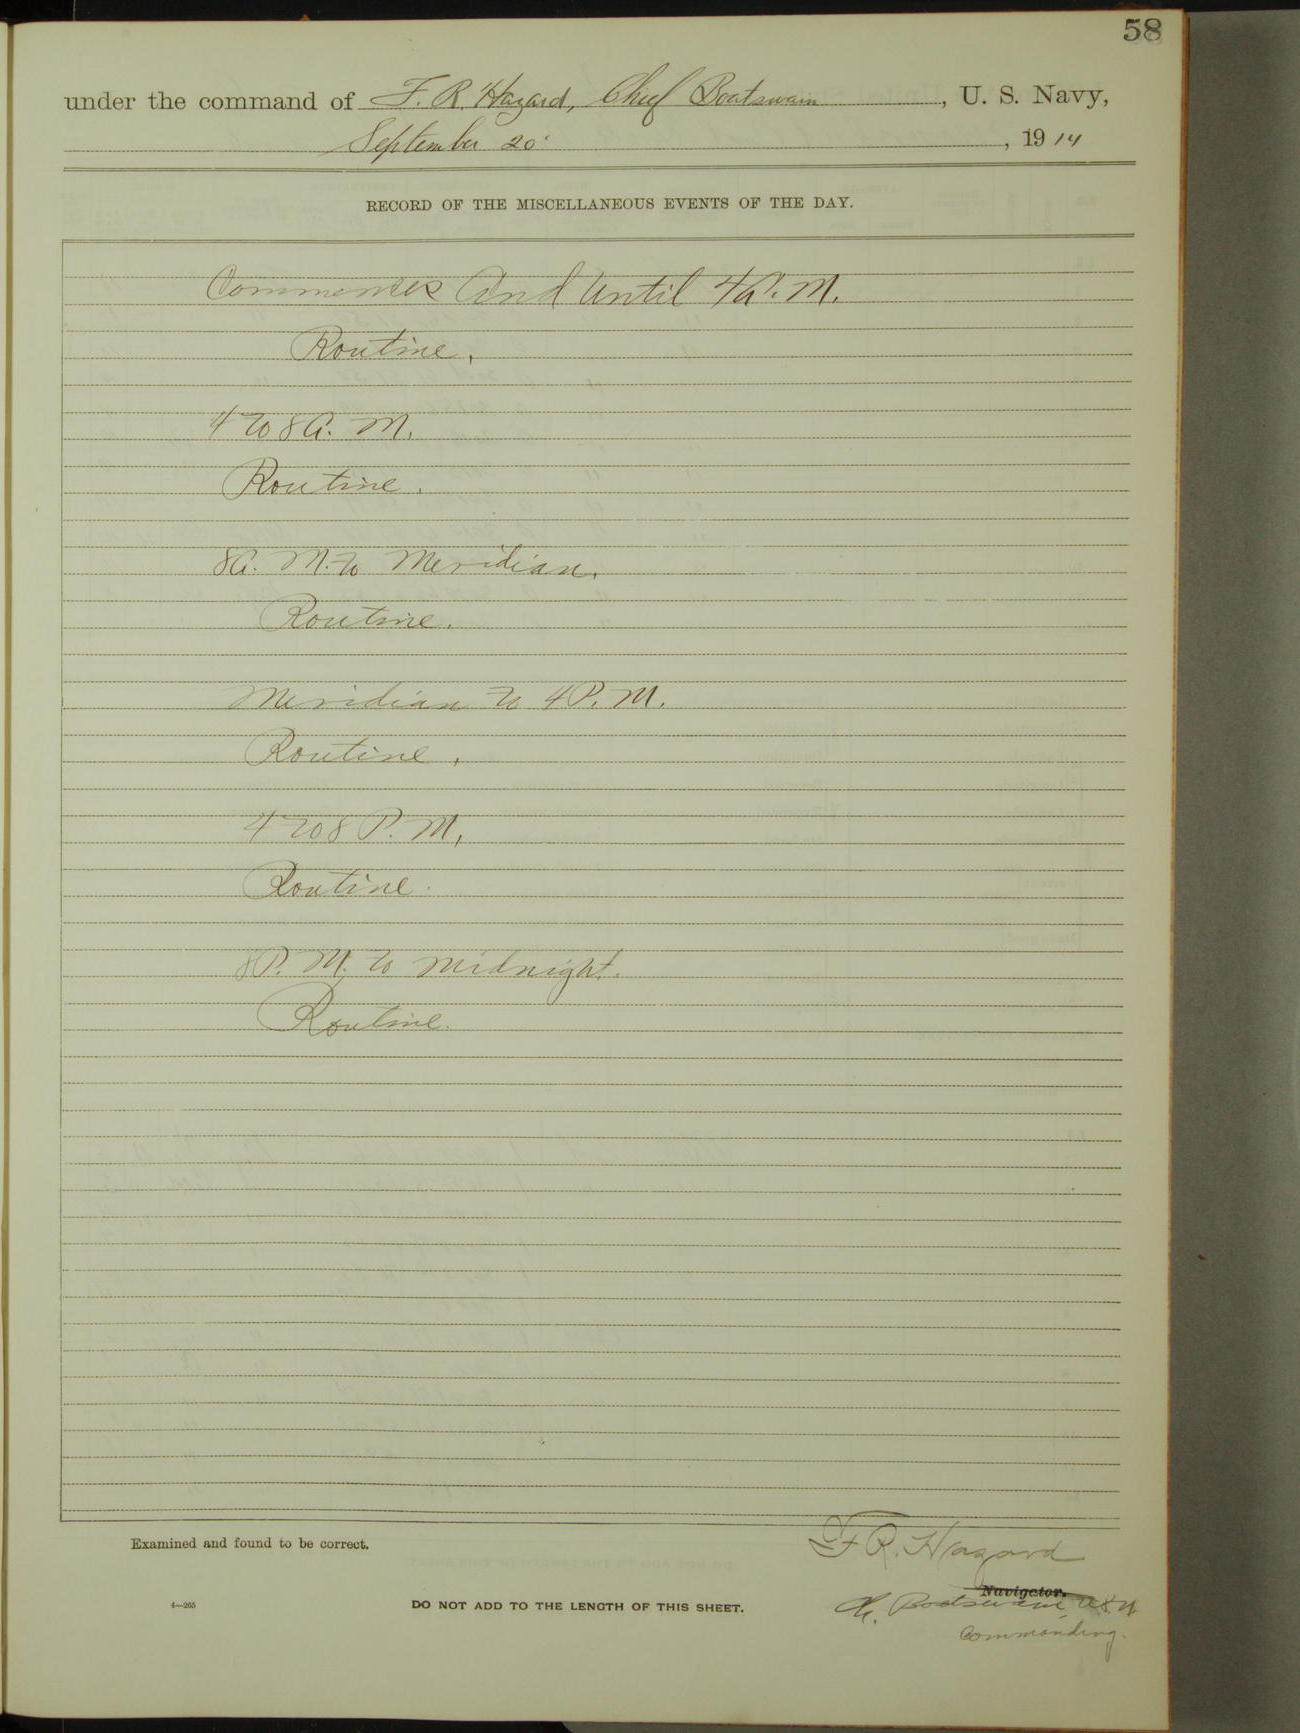 58
under the command of F. R. Hazard, Chief Boatswain, U. S. Navy,
September 20, 1914
RECORD OF THE MISCELLANEOUS EVENTS OF THE DAY.
Commences And Until 4 A. M.
Routine.
4 to 8 A. M.
Routine.
8 A. M. to Meridian.
Routine.
Meridian to 4 P. M.
Routine.
4 to 8 P. M.
Routine.
8 P. M. to Midnight.
Routine.
Examined and found to be correct.
F R. Hazard
Navigator.
Ch. Boatswain, USN
Commanding.
4—265
DO NOT ADD TO THE LENGTH OF THIS SHEET.